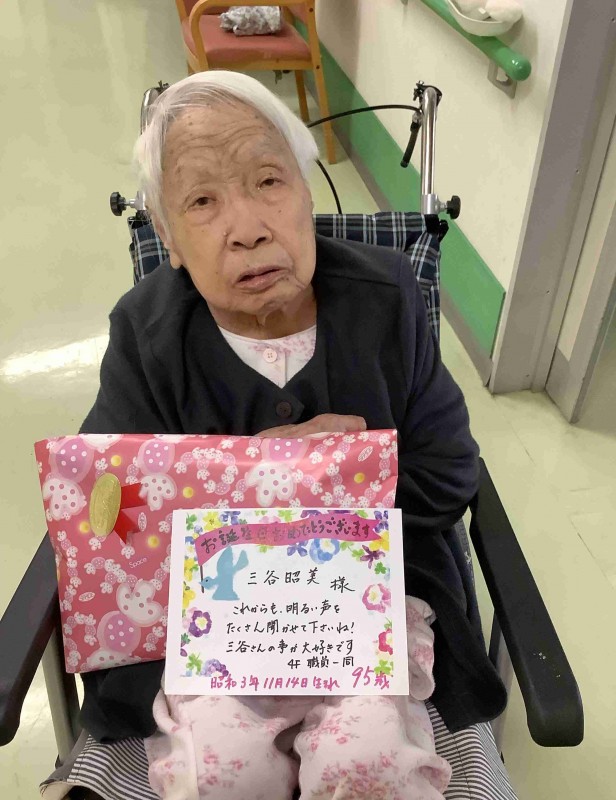 お誕生日おめでとうございます
三谷昭美 様
これからも、明るい声を
たくさん聞かせて下さいね!
三谷さんの事が大好きです
4F 職員一同
昭和3年11月14日生まれ 95歳